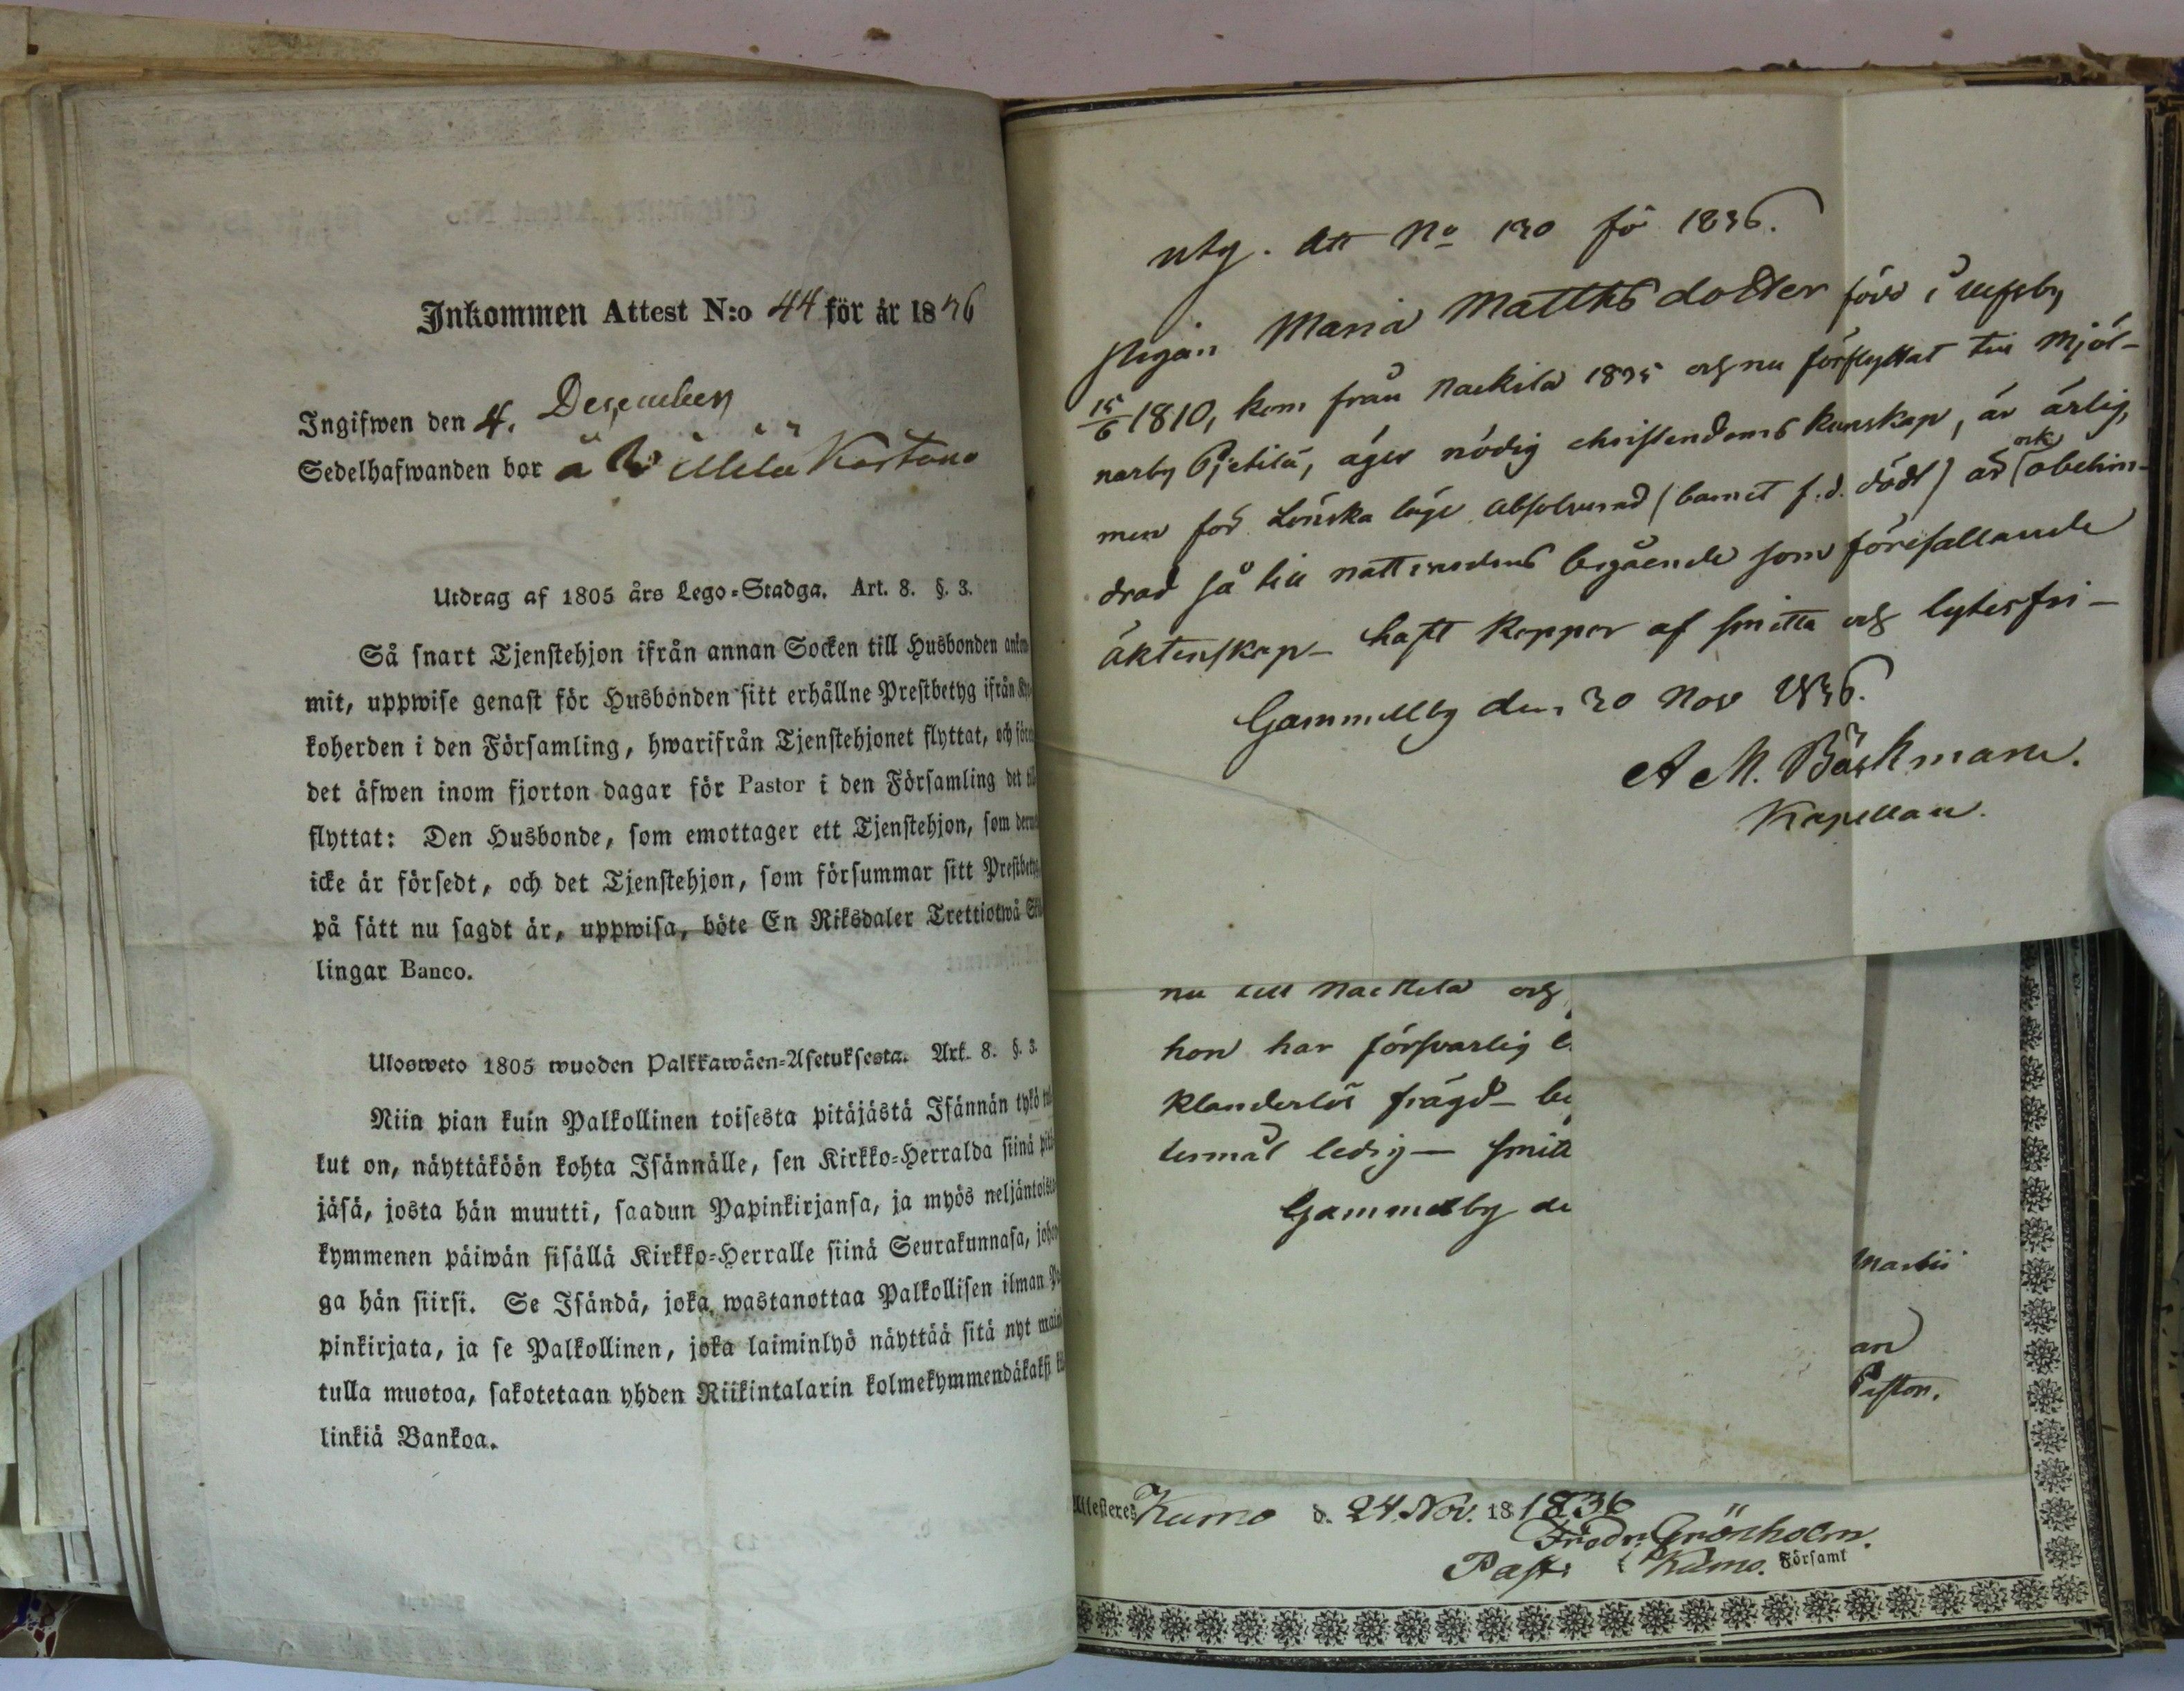 Inkommen Attest N:o 44 för år 1836
Ingifwen den 4. December
Sedelhafwanden bor å
Utdrag af 1805 års Lego-Stadga. Art. 8. §. 3.
Så snart Tjenstehjon ifrån annan Socken till Husbonden
mit, uppwise genast för Husbonden sitt erhållne Prestbetyg ifrån
koherden i den Församling, hwarifrån Tjenstehjonet flyttat, och
det äfwen inom fjorton dagar för Pastor i den Församling det
flyttat: Den Husbonde, som emottager ett Tjenstehjon, som
icke är försedt, och det Tjenstehjon, som försummar sitt
på sätt nu sagdt är, uppwisa, böte En Riksdaler Trettiotwå
lingar Banco.
Ulosweto 1805 wuoden Palkkawäen-Asetuksesta. Art. 8. §. 3.
Niin pian kuin Palkollinen toisesta pitäjästä Isännän tykö
kut on, näyttäköön kohta Isännälle, sen Kirkko-Herralda siinä
jäsä, josta hän muutti, saadun Papinkirjansa, ja myös
kymmenen päiwän sisällä Kirkko-Herralle siinä Seurakunnasa,
ga hän siirsi. Se Isändä, joka wastanottaa Palkollisen ilman
pinkirjata, ja se Palkollinen, joka laiminlyö näyttää sitä nyt
tulla muotoa, sakotetaan yhden Riikintalarin kolmekymmendäkaksi
linkiä Bankoa.
utg. Att No 130 fö 1836.
Pigan Maria Matthsdotter född i Ulfsby
15/6 1810, kom från Nackila 1835 och nu förflyttat till Mjöl-
narby Pjetilä, äger nödig christendoms kunskap, är ärlig,
men för Lönska läge absolverad (barnet f. d. dödt) är ock obehin-
drad så till nattvardens begående som förefallande
äktenskap – haft koppor af smitta och lytesfri –
Gammelby den 30 Nov 1836.
A M. Bäckman.
Kapellan.
nu till Nackila och
hon har försvarlig
klanderlös frägd –
termål ledig – smitt
Gammelby de
Martii
an
Attesteres Kumo d. 24. Nov. 18 1836
Fredr. Grönholm.
Past: i Kumo. Församl